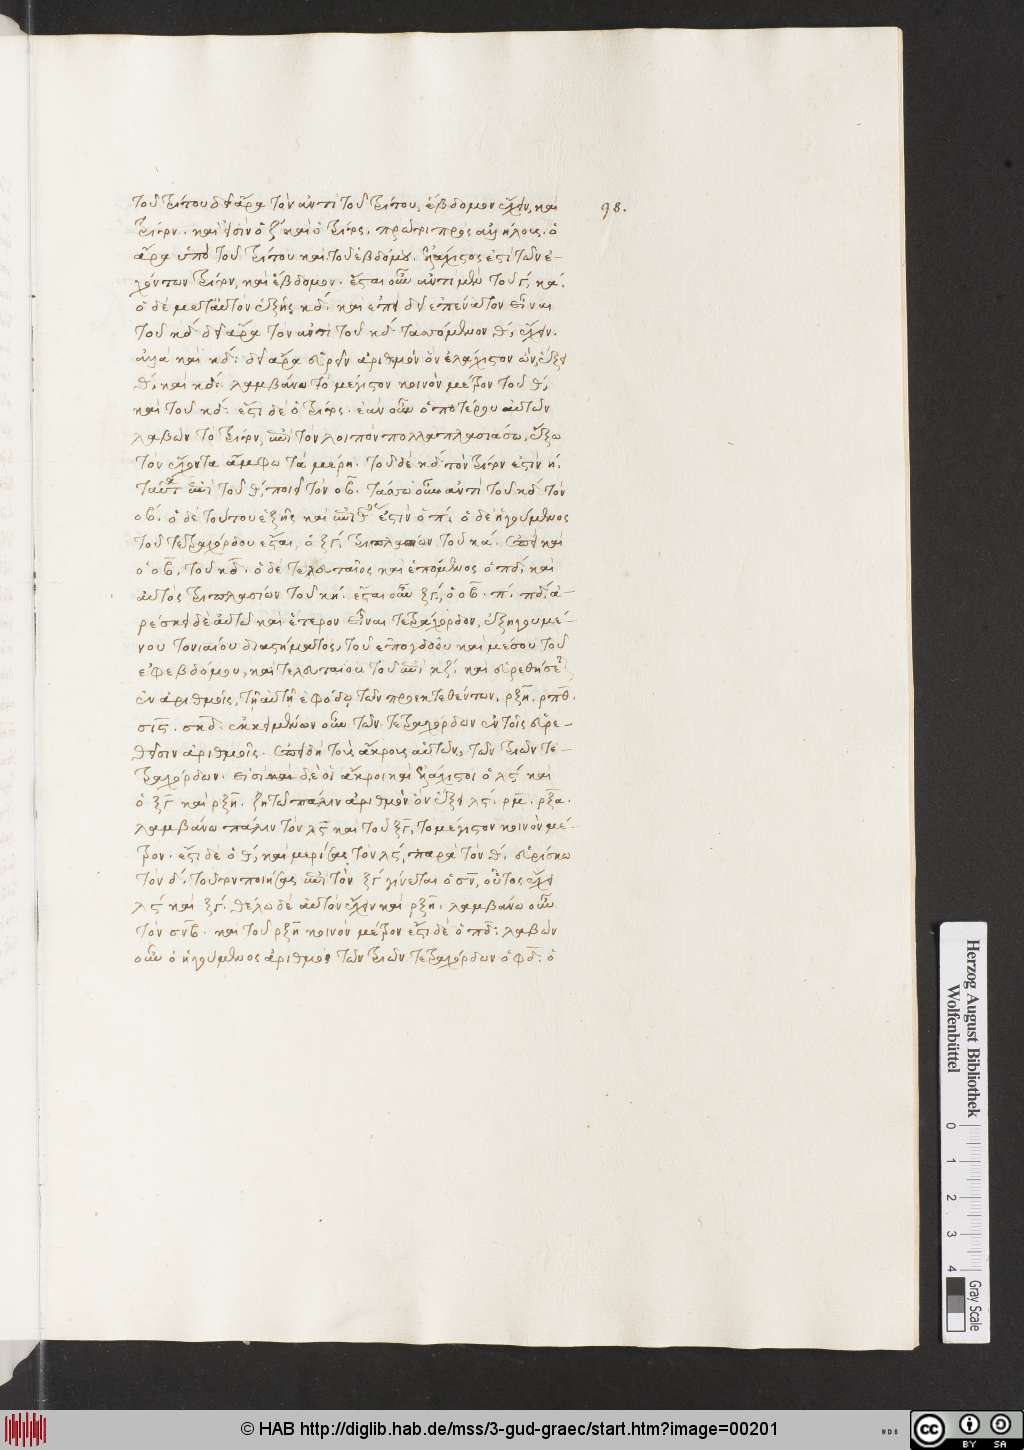 τοῦ τρίτου δεῖ ἄρα τὸν ἀντὶ τοῦ τρίτου, ἕβδομον ἔχειν, καὶ
τρίτον. καὶ εἰσὶν ὁ ζ καὶ ὁ τρίτος, πρῶτοι πρὸς ἀλλήλους. ὁ
ἄρα ὑπὸ τοῦ τρίτου καὶ τοῦ ἑβδόμου. ἐλάχιστος ἐστὶ τῶν ἐ-
χόντων τρίτον, καὶ ἕβδομον. ἔσται οὖν ἀντὶ μὲν τοῦ γ, κα.
ὁ δὲ μετ αὐτὸν ἑξῆς κδ. καὶ ἐπεὶ δεῖ ἐπένατον εἶναι
τοῦ κδ δεῖ ἄρα τὸν ἀντὶ τοῦ κδ ταττόμενον θ, ἔχειν.
ἀλλὰ καὶ κδ. δεῖ ἄρα εὑρεῖν ἀριθμὸν ὃν ἐλάχιστον ὢν, ἕξει
θ, καὶ κδ. λαμβάνω τὸ μέγιστον κοινὸν μέτρον τοῦ θ,
καὶ τοῦ κδ. ἔστι δὲ ὁ τρίτος. ἐὰν οὖν ὁποτέρου αὐτῶν
λαβὼν τὸ τρίτον, ἐπὶ τὸν λοιπὸν πολλαπλασιάσω, ἕξω
τὸν ἔχοντα ἄμφω τὰ μέρη. τοῦ δὲ κδ τὸν τρίτον ἐστὶν η.
ταῦτα ἐπὶ τοῦ θ, ποιεῖ τὸν οβ. τάττω οὖν ἀντὶ τοῦ κδ τὸν
οβ. ὁ δὲ τούτου ἑξῆς καὶ ἐστὶν ὁ π. ὁ δὲ ἡγούμενος
τοῦ τετραχόρδου ἔσται, ὁ ξγ, τριπλασίων τοῦ κα. ἐπεὶ καὶ
ὁ οβ, τοῦ κδ. ὁ δὲ τελευταῖος καὶ ἑπόμενος ὁ πδ, καὶ
αὐτὸς τριπλασίων τοῦ κη. ἔσται οὖν ξγ, ὁ οβ. π. πδ, ἀ-
ρέσκει δὲ αὐτῷ καὶ ἕτερον εἶναι τετράχορδον, ἐξηγουμέ-
νου τονιαίου διαστήματος, τοῦ ἐπογδόου καὶ μέσου τοῦ
ἐφεβδόμου, καὶ τελευταίου τοῦ ἐπὶ κζ, καὶ εὑρεθήσεται
ἐν ἀριθμοῖς, τῇ αὐτῇ ἐφόδῳ τῶν προεκτεθέντων, ρξη. ρπθ.
σις. σκδ. ἐκκειμένων οὖν τῶν τετραχόρδων ἐν τοῖς εὑρε-
θεῖσιν ἀριθμοῖς. ἐπειδὴ τοὺς ἄκρους αὐτῶν, τῶν τριῶν τε-
τραχόρδων. εἰσὶ καὶ δὲ οἱ ἄκροι καὶ ἐλάχιστοι ὁ λς καὶ
ὁ ξγ καὶ ρξη. ζητῶ πάλιν ἀριθμὸν ὃν ἕξει λς. ρμ. ρξα.
λαμβάνω πάλιν τὸν λς καὶ τοῦ ξγ, τὸ μέγιστον κοινὸν μέ-
τρον. ἔστι δὲ ὁ θ, καὶ μερίσας τὸν λς, παρὰ τὸν θ, εὑρίσκω
τὸν δ, τοῦτον ποιήσας ἐπὶ τὸν ξγ γίνεται ὁ σν, οὗτος ἔχει
λς καὶ ξγ. θέλω δὲ αὐτὸν ἔχειν καὶ ρξη. λαμβάνω οὖν
τὸν σνβ. καὶ τοῦ ρξη κοινὸν μέτρον ἔστι δὲ ὁ πδ. λαβὼν
οὖν ὁ ἡγούμενος ἀριθμὸς τῶν τριῶν τετραχόρδων ὁ φδ. ὁ
98.
Herzog August Bibliothek
Wolfenbüttel
0 1 2 3 4
Gray Scale
© HAB http://diglib.hab.de/mss/3-gud-graec/start.htm?image=00201
cc BY SA